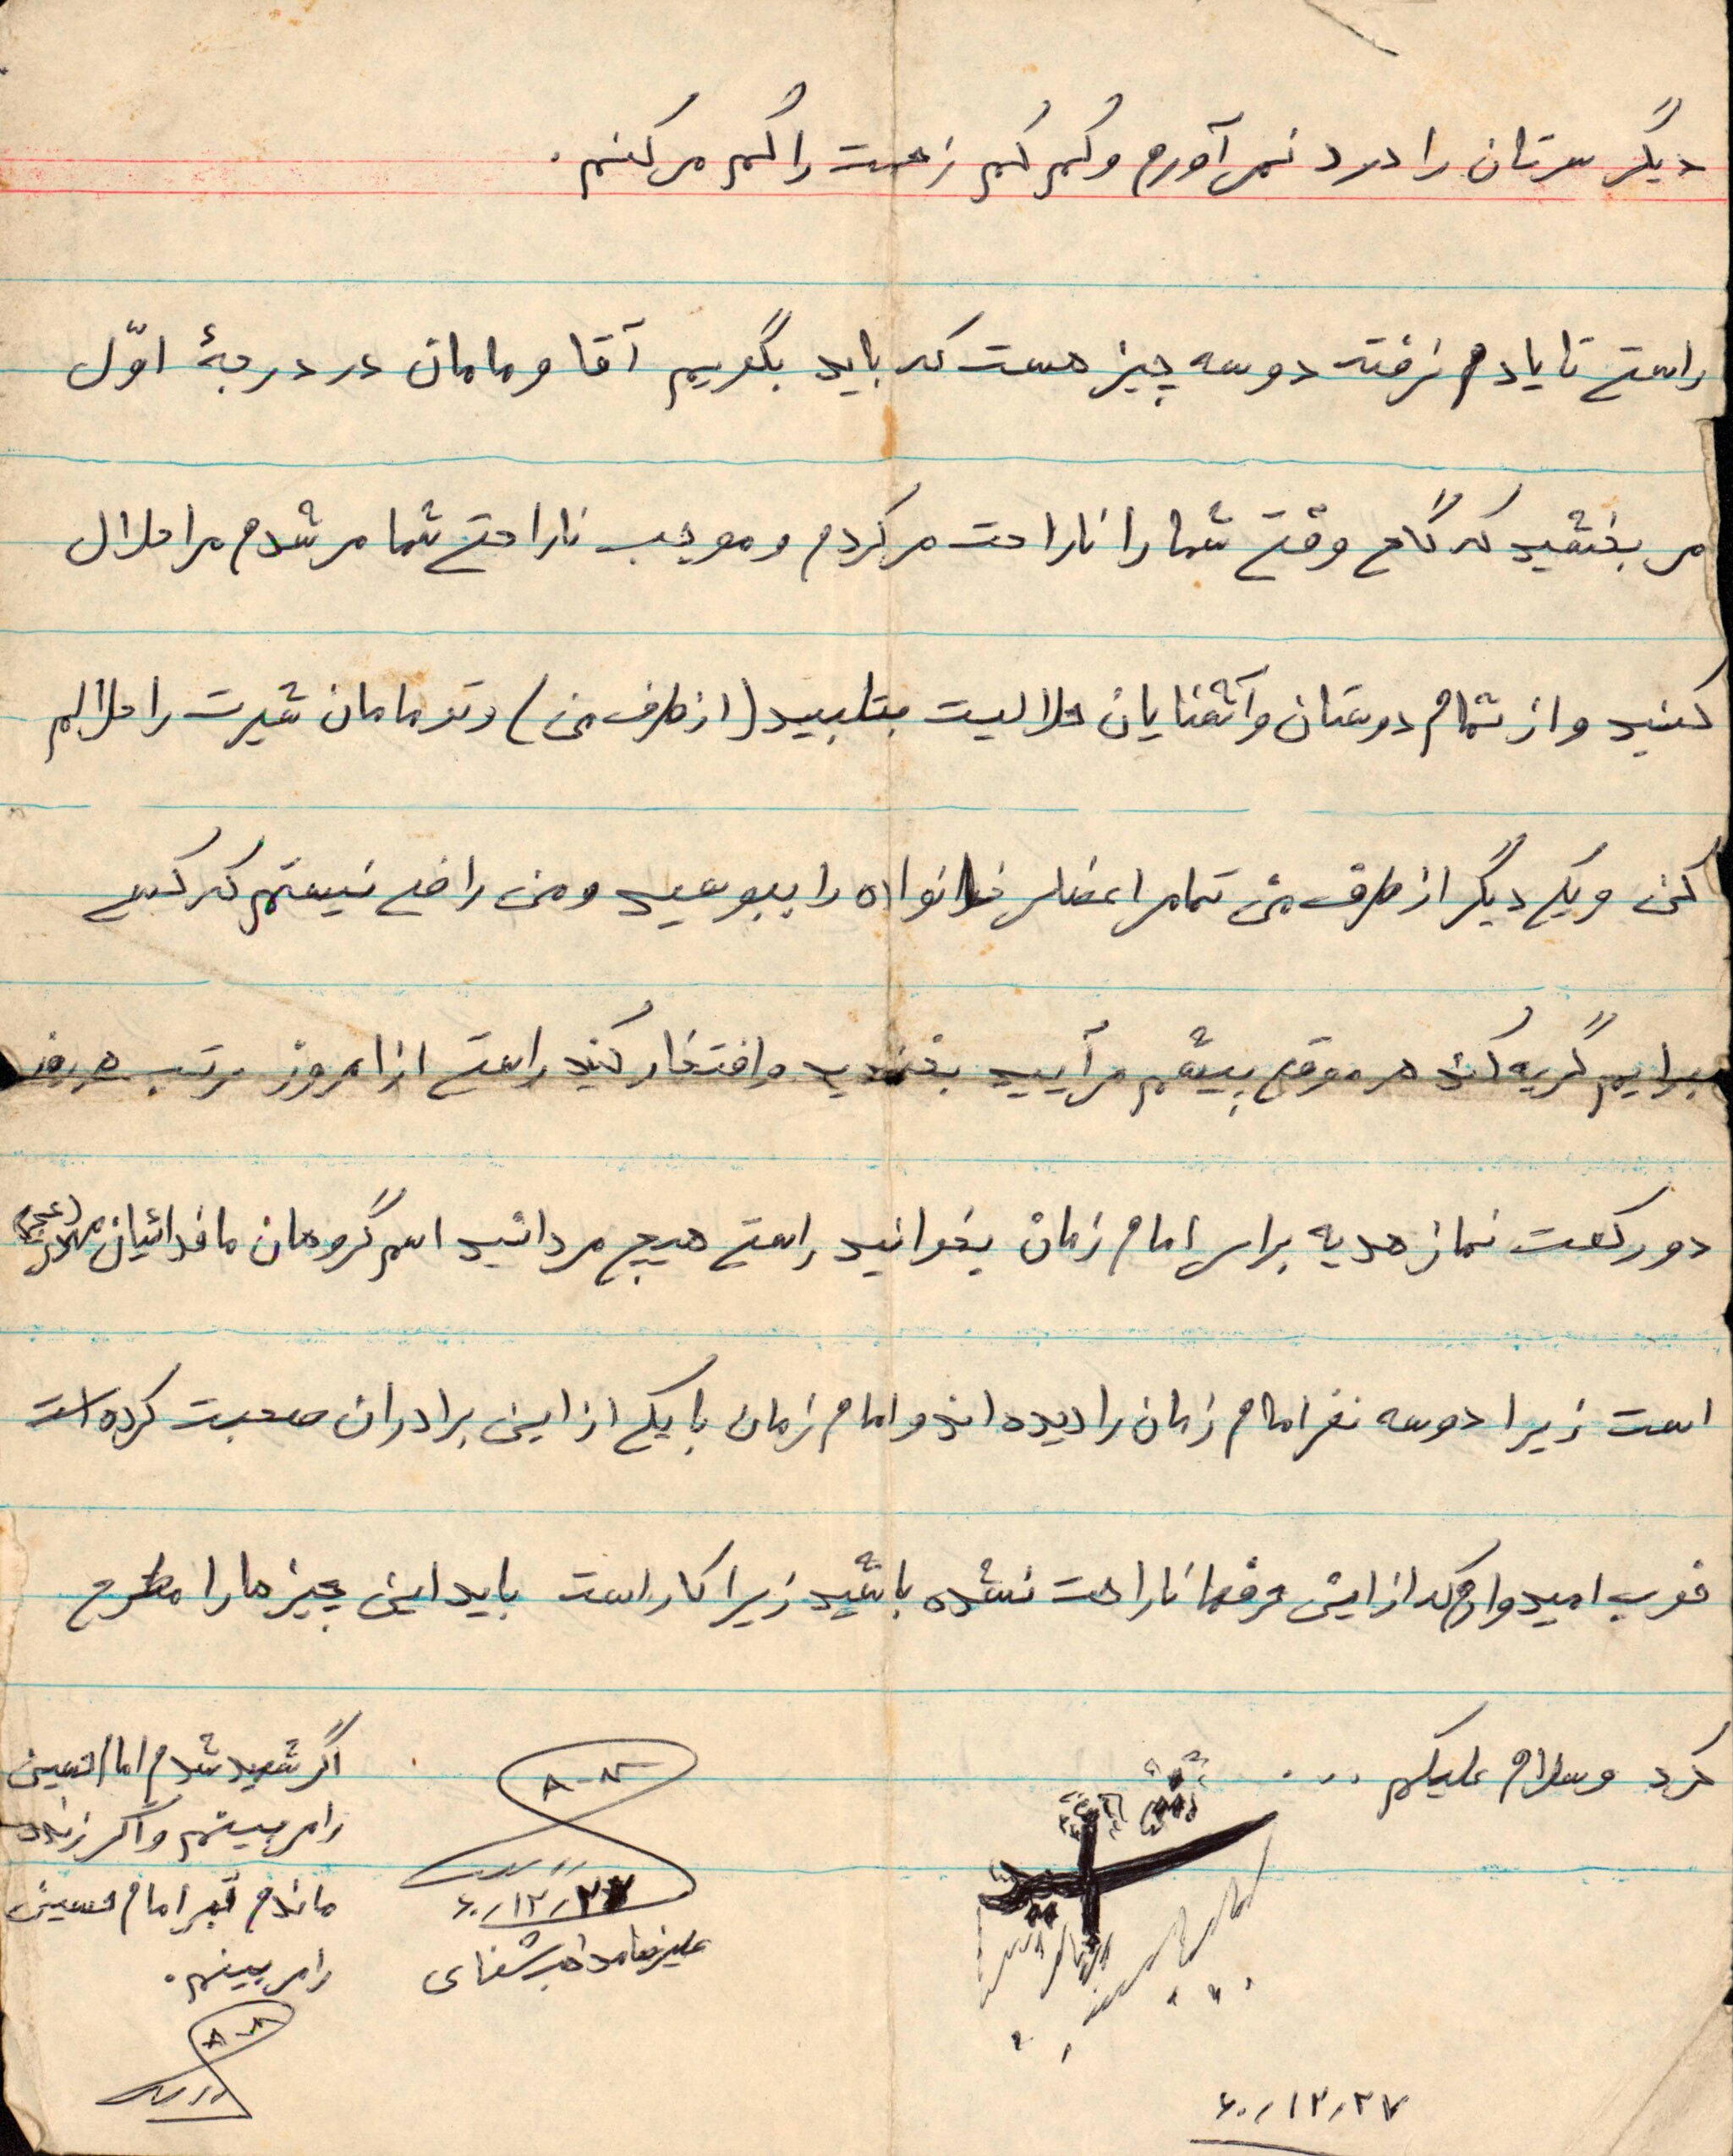 دیگر سرتان را درد نمی آورم و کم کم زحمت را کم می کنم.
راستی تا یادم نرفته دو سه چیز هست که باید بگویم آقا و مامان در درجهٔ اوّل
می بخشید که گاهی وقتی شما را ناراحت می کردم و موجب ناراحتی شما می شدم مرا حلال
کنید و از تمام دوستان و آشنایان حلالیت بتلبید (از طرف من) و تو مامان شیرت را حلالم
کن و یکی دیگر از طرف من تمام اعضای خانواده را ببوسید و من راضی نیستم که کسی
برایم گریه کند هر موقع پیشم می آیید بخندید و افتخار کنید راستی از امروز مرتب هر روز
دو رکعت نماز هدیه برای امام زمان بخوانید راستی هیچ می دانید اسم گروهان ما فدائیان مهدی (عج)
است زیرا دو سه نفر امام زمان را دیده اند و امام زمان با یکی از این برادران صحبت کرده است
خوب امیدوارم که از این حرفها ناراحت نشده باشید زیرا کار است باید این چیزها را مطرح
کرد و سلام علیکم ...
۶۰/۱۲/۲۷
علیرضا
۶۰/۱۲/۲۷
اگر شهید شدم امام حسین
را می بینم و اگر زنده
ماندم قبر امام حسین
را می بینم.